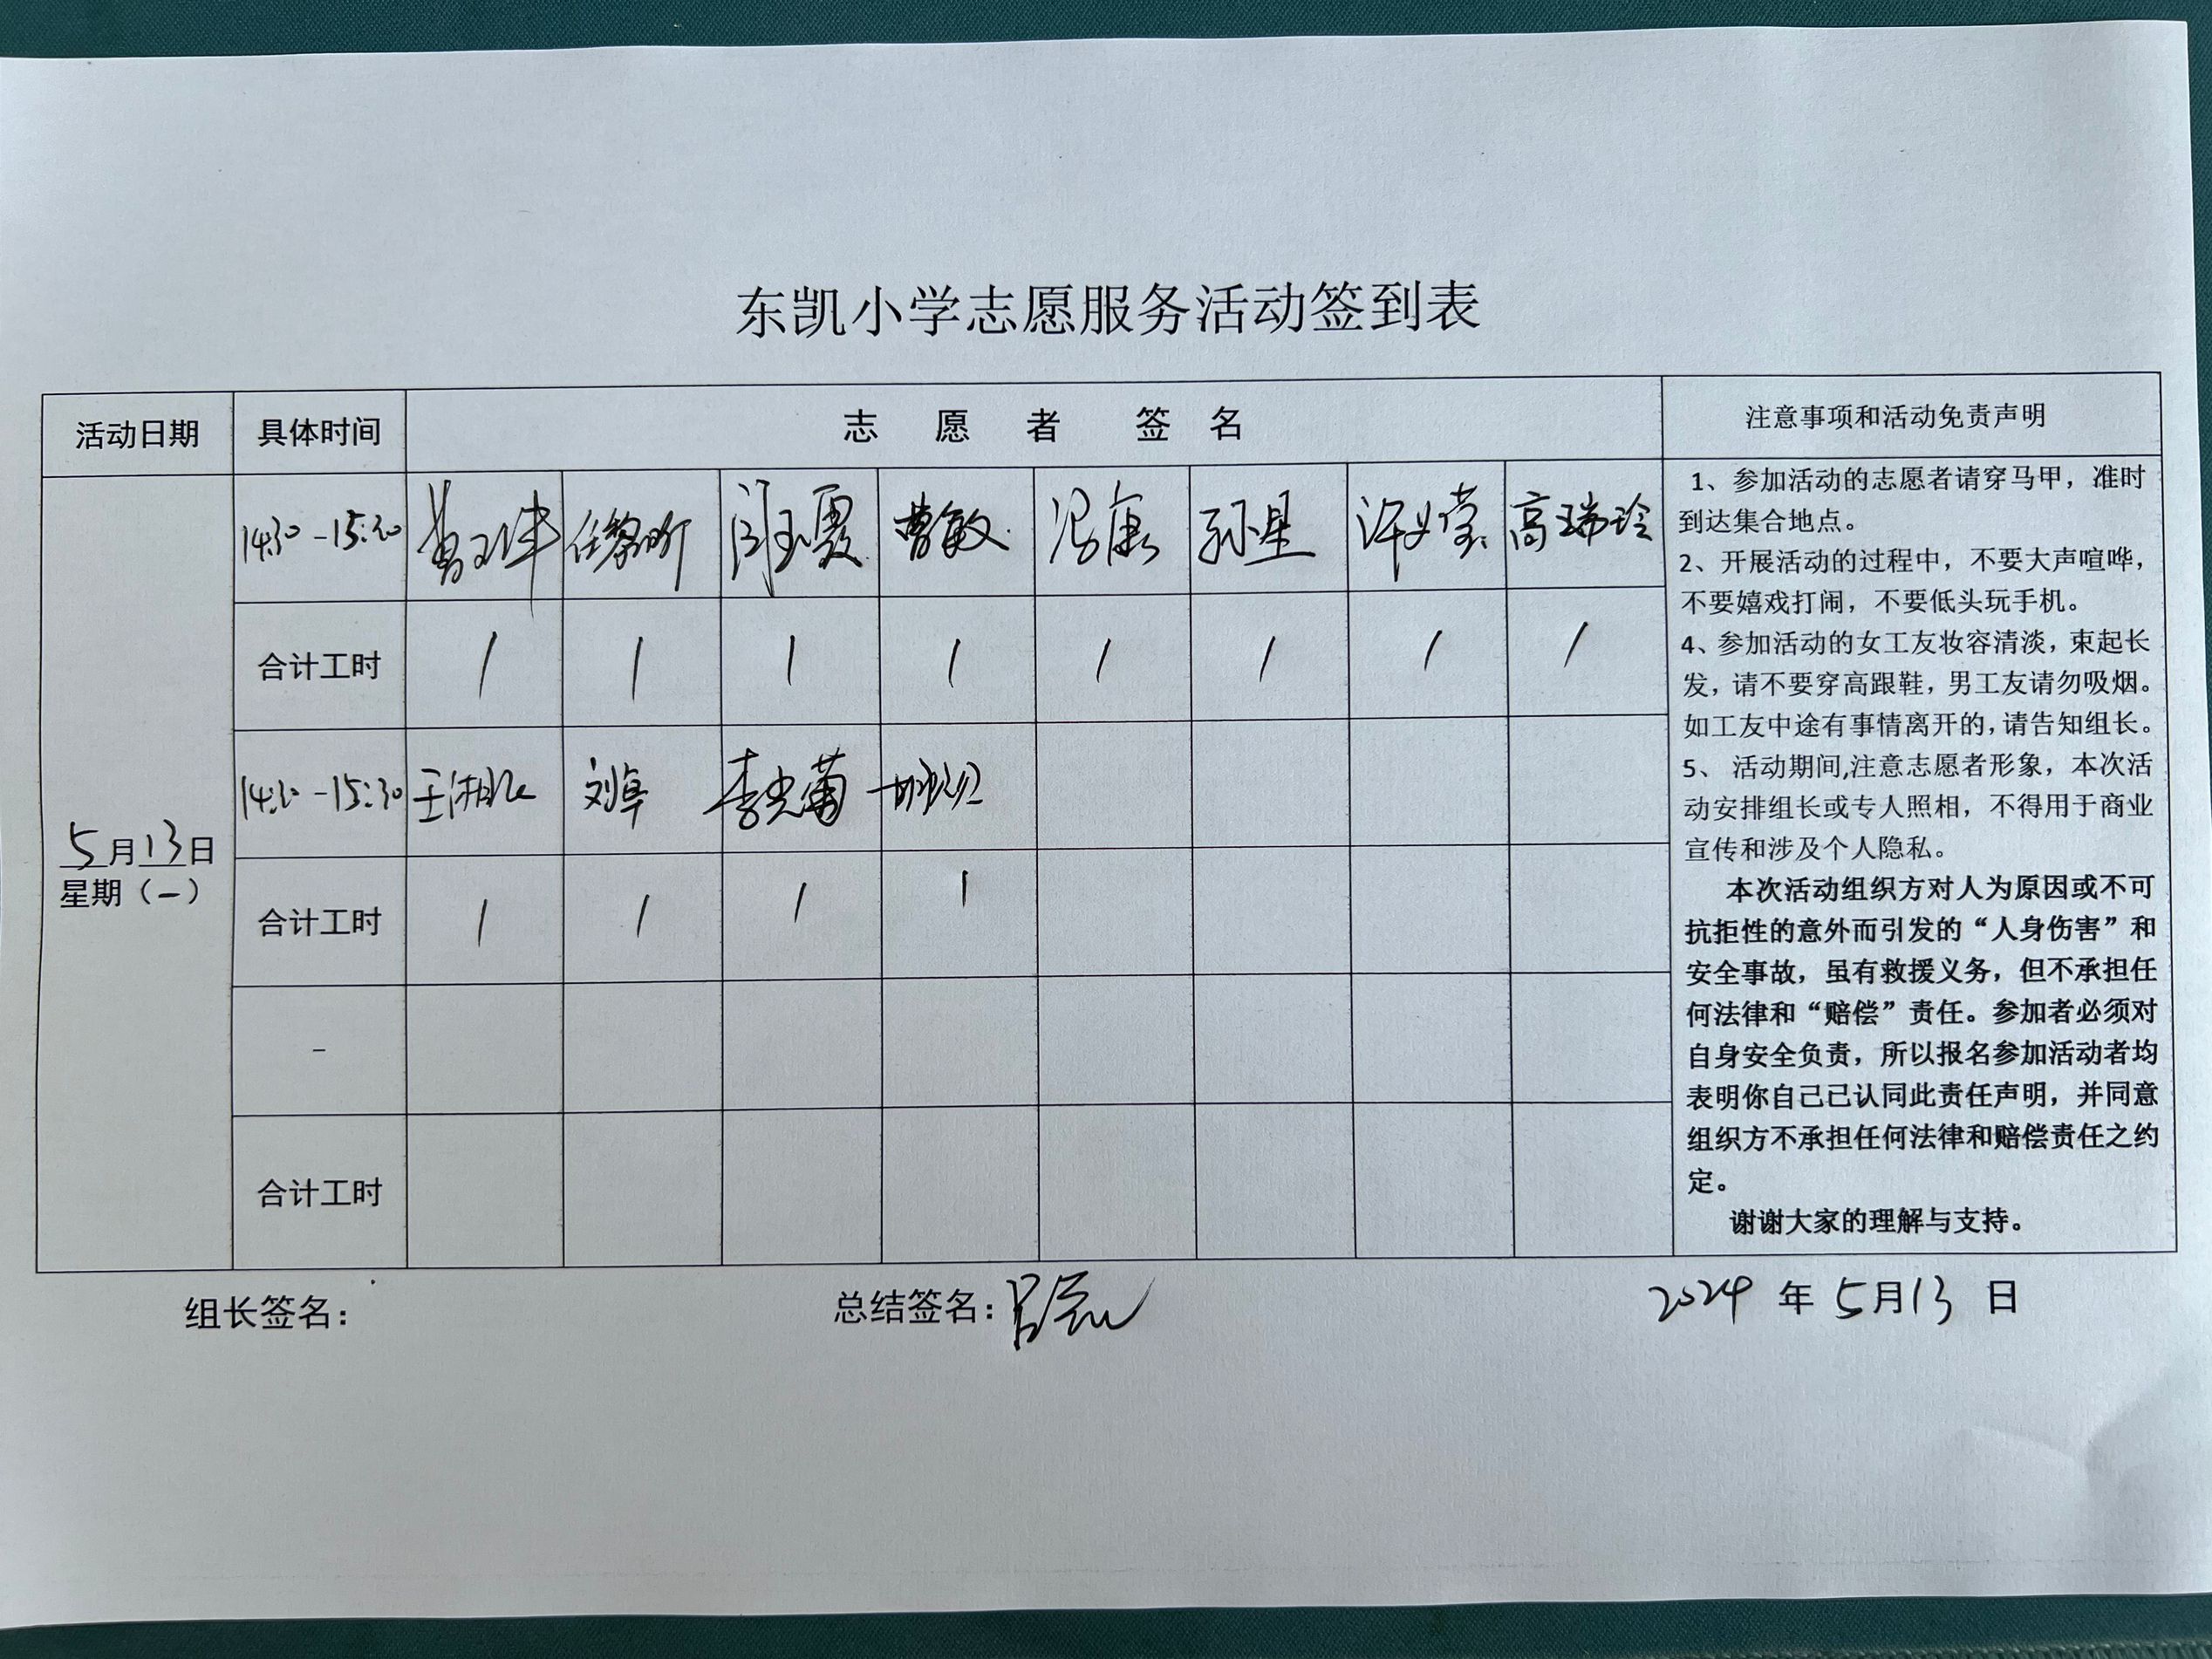 东凯小学志愿服务活动签到表
活动日期 具体时间 志愿者签名 注意事项和活动免责声明
14:30-15:30 任黎昕 闫玉霞 曹敏 冯康 孙星 许义莹 高瑞玲
合计工时 1 1 1 1 1 1 1 1
14:30-15:30 刘卓 李光菊
5月13日
星期(一)
合计工时 1 1 1 1
-
合计工时
1、参加活动的志愿者请穿马甲，准时
到达集合地点。
2、开展活动的过程中，不要大声喧哗，
不要嬉戏打闹，不要低头玩手机。
4、参加活动的女工友妆容清淡，束起长
发，请不要穿高跟鞋，男工友请勿吸烟。
如工友中途有事情离开的，请告知组长。
5、 活动期间,注意志愿者形象，本次活
动安排组长或专人照相，不得用于商业
宣传和涉及个人隐私。
本次活动组织方对人为原因或不可
抗拒性的意外而引发的“人身伤害”和
安全事故，虽有救援义务，但不承担任
何法律和“赔偿”责任。参加者必须对
自身安全负责，所以报名参加活动者均
表明你自己已认同此责任声明，并同意
组织方不承担任何法律和赔偿责任之约
定。
谢谢大家的理解与支持。
组长签名： 总结签名： 2024 年 5月13 日